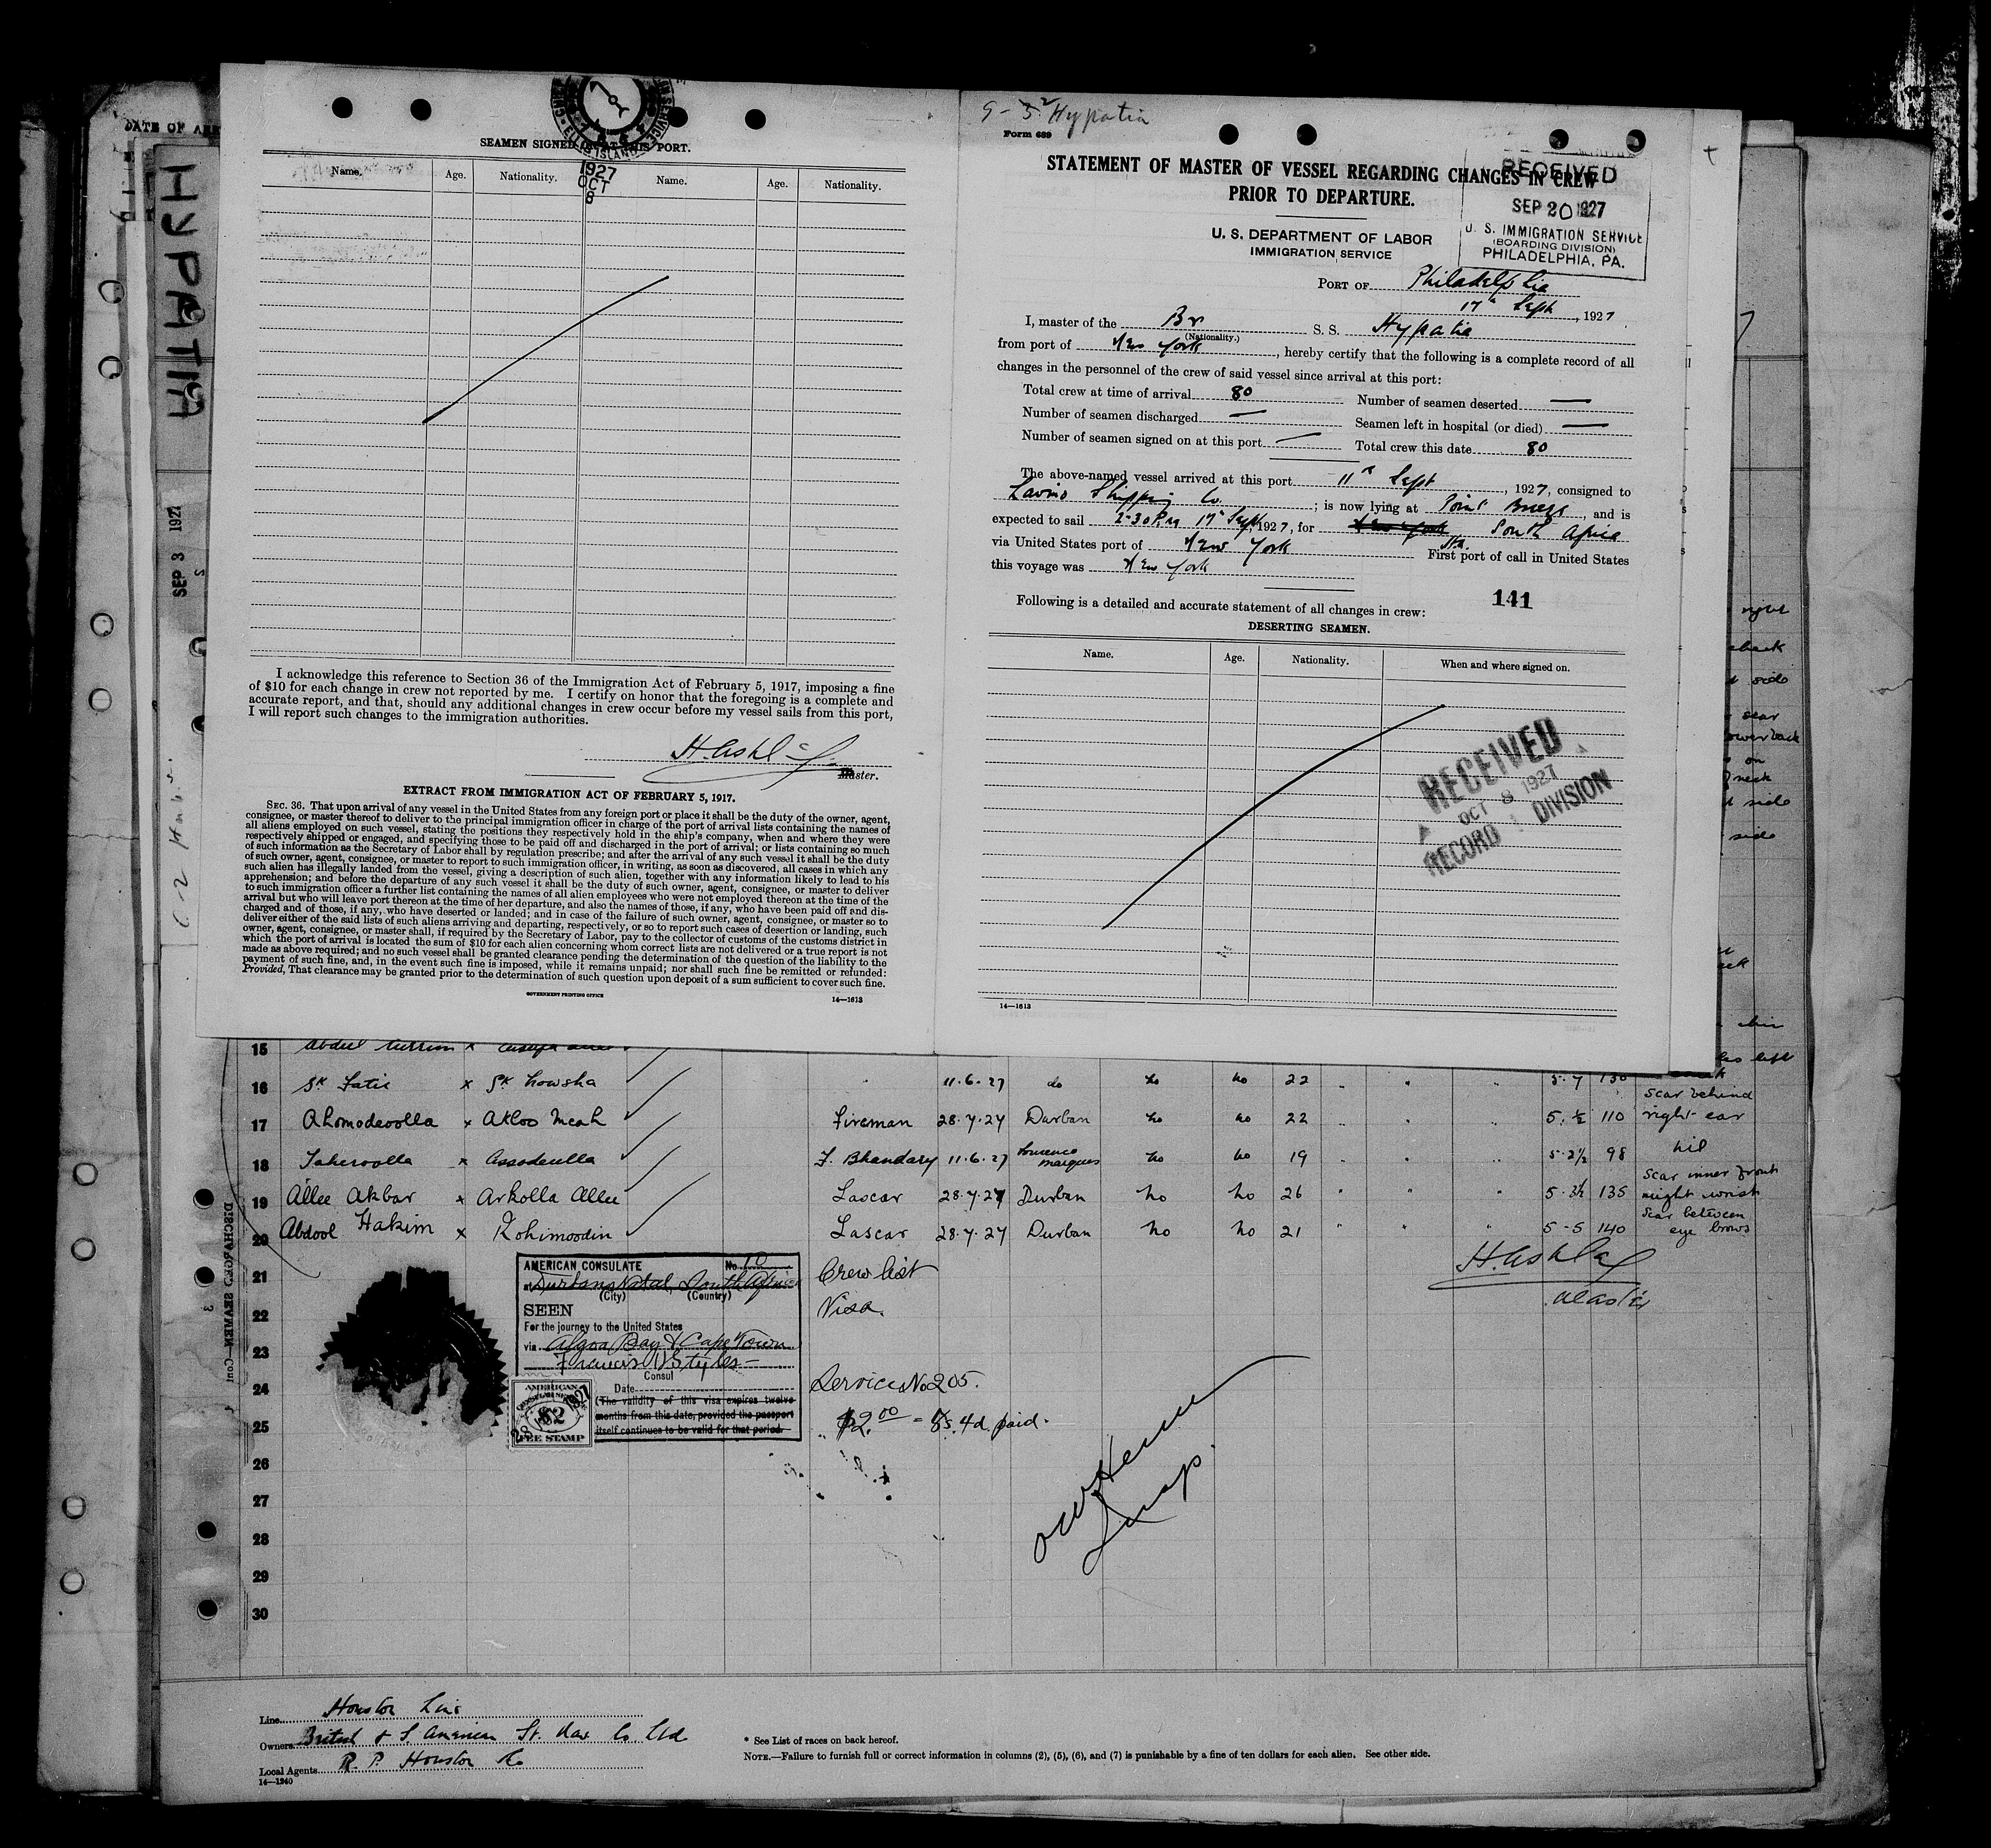 DATE OF
HYPATIA
SEP 3 1927
SEAMEN SIGNED ON AT THIS PORT.
ELLIS ISLAND
1927
OCT
8
Name. Age. Nationality. Name. Age. Nationality.
I acknowledge this reference to Section 36 of the Immigration Act of February 5, 1917, imposing a fine
of $10 for each change in crew not reported by me. I certify on honor that the foregoing is a complete and
accurate report, and that, should any additional changes in crew occur before my vessel sails from this port,
I will report such changes to the immigration authorities.
Master.
EXTRACT FROM IMMIGRATION ACT OF FEBRUARY 5, 1917.
SEC. 36. That upon arrival of any vessel in the United States from any foreign port or place it shall be the duty of the owner, agent,
consignee, or master thereof to deliver to the principal immigration officer in charge of the port of arrival lists containing the names of
all aliens employed on such vessel, stating the positions they respectively hold in the ship's company, when and where they were
respectively shipped or engaged, and specifying those to be paid off and discharged in the port of arrival; or lists containing so much
of such information as the Secretary of Labor shall by regulation prescribe; and after the arrival of any such vessel it shall be the duty
of such owner, agent, consignee, or master to report to such immigration officer, in writing, as soon as discovered, all cases in which any
such alien has illegally landed from the vessel, giving a description of such alien, together with any information likely to lead to his
apprehension; and before the departure of any such vessel it shall be the duty of such owner, agent, consignee, or master to deliver
to such immigration officer a further list containing the names of all alien employees who were not employed thereon at the time of the
arrival but who will leave port thereon at the time of her departure, and also the names of those, if any, who have been paid off and dis-
charged and of those, if any, who have deserted or landed; and in case of the failure of such owner, agent, consignee, or master so to
deliver either of the said lists of such aliens arriving and departing, respectively, or so to report such cases of desertion or landing, such
owner, agent, consignee, or master shall, if required by the Secretary of Labor, pay to the collector of customs of the customs district in
which the port of arrival is located the sum of $10 for each alien concerning whom correct lists are not delivered or a true report is not
made as above required; and no such vessel shall be granted clearance pending the determination of the question of the liability to the
payment of such fine, and, in the event such fine is imposed, while it remains unpaid; nor shall such fine be remitted or refunded:
Provided, That clearance may be granted prior to the determination of such question upon deposit of a sum sufficient to cover such fine.
GOVERNMENT PRINTING OFFICE 14—1613
Hypatia
Form 689
STATEMENT OF MASTER OF VESSEL REGARDING CHANGES IN CREW
PRIOR TO DEPARTURE.
RECEIVED
SEP 20 1927
U. S. IMMIGRATION SERVICE
(BOARDING DIVISION)
PHILADELPHIA, PA.
U. S. DEPARTMENT OF LABOR
IMMIGRATION SERVICE
PORT OF Philadelphia
17th Sept, 1927
I, master of the Br S. S. Hypatia
(Nationality.)
from port of New York, hereby certify that the following is a complete record of all
changes in the personnel of the crew of said vessel since arrival at this port:
Total crew at time of arrival 80 Number of seamen deserted —
Number of seamen discharged — Seamen left in hospital (or died) —
Number of seamen signed on at this port — Total crew this date 80
The above-named vessel arrived at this port 11th Sept, 1927, consigned to
Lavino Shipping Co.; is now lying at Point Breeze, and is
expected to sail 2-30 P.M 17th Sept, 1927, for New York South Africa
via United States port of New York First port of call in United States
this voyage was New York
141
Following is a detailed and accurate statement of all changes in crew:
DESERTING SEAMEN.
Name. Age. Nationality. When and where signed on.
RECEIVED
OCT 8 1927
RECORD DIVISION
14—1613
15 Abdul
16 Sk x Sk 11.6.27 do no no 22 5.7 130
scar behind
17 Ahomodeoolla x Akloo Meah Fireman 28.7.27 Durban no no 22 5.½ 110 right ear
18 Taheroolla x Assodeulla F. Bhandary 11.6.27 Lourenco Marques no no 19 5.2½ 98 nil
scar inner front
19 Allee Akbar x Arkolla Allee Lascar 28.7.27 Durban no no 26 5.3½ 135 right wrist
scar between
20 Abdool Hakim x Rohimoodin Lascar 28.7.27 Durban no no 21 5-5 140 eye brows
Master
21
22
23
24
25
26
27
28
29
30
DISCHARGED SEAMEN—Cont
AMERICAN CONSULATE No. 10
at Durban, Natal, South Africa
(City) (Country)
SEEN
For the journey to the United States
via Algoa Bay & Cape Town
Francis H Styles
Consul
Date
(The validity of this visa expires twelve
months from this date, provided the passport
itself continues to be valid for that period.
AMERICAN
$2
FEE STAMP
Crew list
Visa.
Service No 205.
$2.00 = 8s. 4d. paid.
Line Houston Line
Owners British & S. American St. Nav Co Ltd
Local Agents R. P. Houston Co
14—1240
* See List of races on back hereof.
NOTE.—Failure to furnish full or correct information in columns (2), (5), (6), and (7) is punishable by a fine of ten dollars for each alien. See other side.